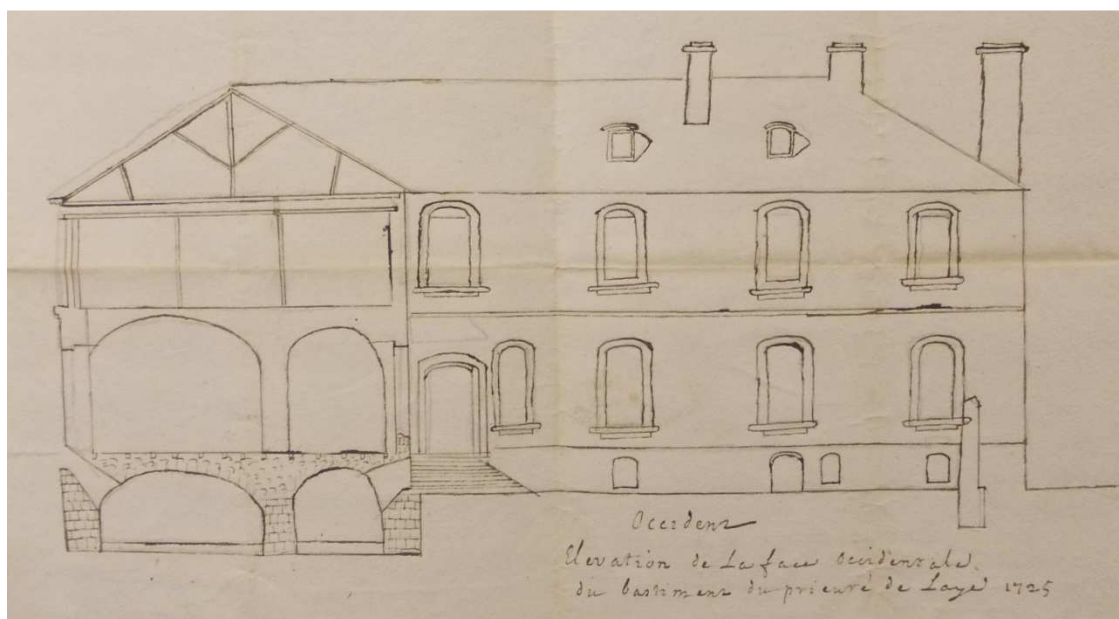 Occident
Elevation de La face Occidentale.
du bastiment du prieuré de Layé 1725